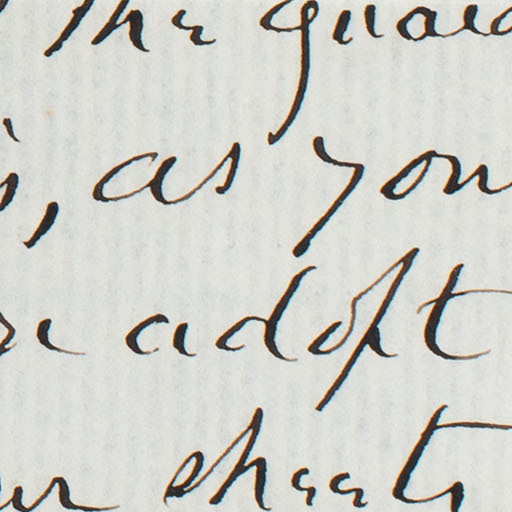 the guard
, as you
adopt
sheets